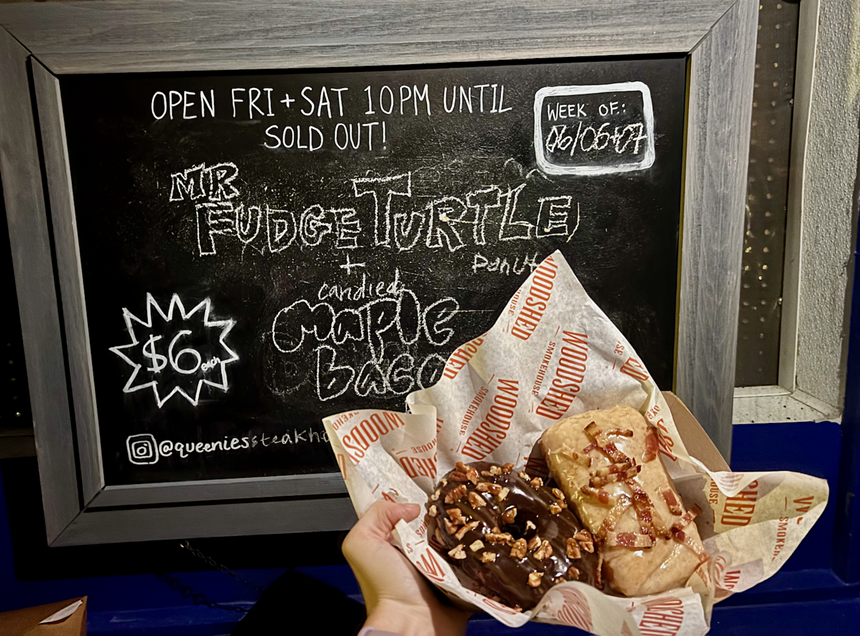 OPEN FRI + SAT 10PM UNTIL
SOLD OUT!
WEEK OF:
06/06+07
MR
FUDGE TURTLE
Donut
+
candied
Maple
baco
$6 each
@queeniessteakh
WOODSHED
SMOKEHOUSE
WOODSHED
SMOKEHOUSE
WOODSHED
SMOKEHOUSE